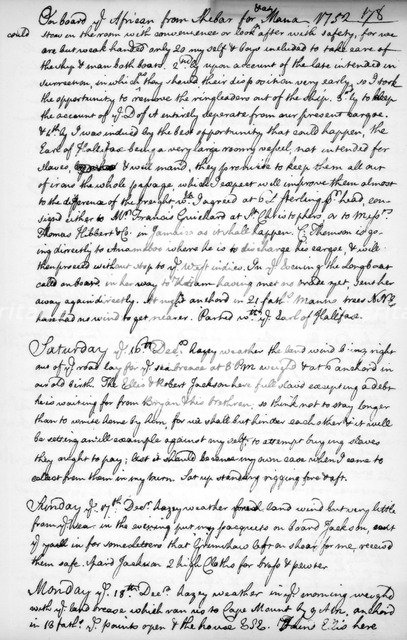 On board ye African from Shebar for Mana 1752 178
could stow in the room with convenience or look after with safety, for we
are but weak handed only 20 my self & boys included to take care of
the ship & man both boats. 2ndly upon account of the late intended in-
surrection, in which they shewed their disposition very early, so I took
the opportunity to remove the ringleaders out of the ship. 3dly to keep
the account of ye D of S entirely separate from our present cargoe.
& 4thly I was induced by the best opportunity that could happen, the
Earl of Halifax being a very large roomy vessel, not intended for
slaves, & well mand, they promise to keep them all out
of irons the whole passage, which I expect will improve them almost
to the difference of the freight, wch I agreed at 6£ sterling pr head, con-
signd either to Mr Francis Guichard at St Christophers, or to Messrs
Thomas Hibbert & Co. in Jamaica as it shall happen. C: Thomson is go-
ing directly to Anamaboe where he is to discharge his cargoe, & will
then proceed without stop to ye West indies. In ye Evening the Longboat
calld onboard in her way to having met no trade yet, sent her
away again directly. At night anchord in 21 fathm Manna trees
have had no wind to get nearer. Parted wth ye Earl of Halifax.
Saturday ye 16th Decr hazey weather the land wind being right
out of ye road lay for ye sea breeze at 3 PM weighd & at 6 anchord in
our old birth. The Ellis & Robert Jackson here full slavd excepting a debt
he is waiting for from Bryan & his brethren, so think not to stay longer
than to write home by him, for we shall but hinder each other & it will
be setting an ill example against my self, to attempt buying slaves
they ought to pay; lest it should become my own case when I came to
collect from them in my turn. Set up standing rigging fore & aft.
Sunday ye 17th Decr hazey weather land wind but very little
from ye sea in the evening put my pacquets on board Jackson, sent
ye yaul in for some letters that Grimshaw left on shoar for me, receivd
them safe. Spard Jackson 2 high Cloths for brass & pewter.
Monday ye 18th Decr hazey weather in ye morning weighd
with ye land breeze which ran us to Cape Mount by anchord
in 13 fathm ye points open & the house E½ here